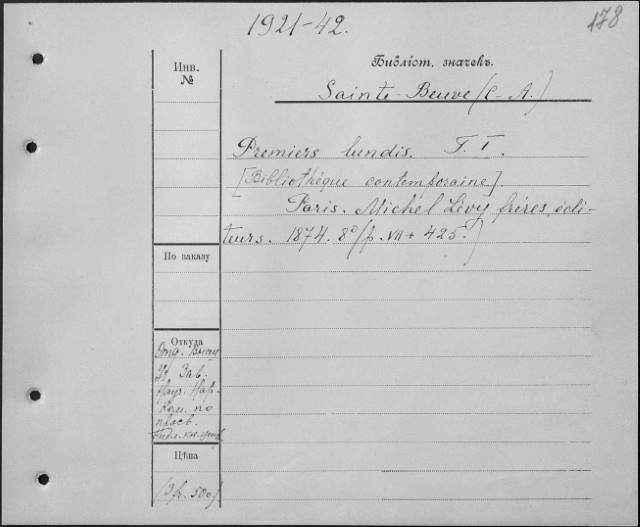 1921-42.
178
Инв.
№
Библіот. значекъ.
Sainte-Beuve (C.-A.)
Premiers lundis. T. I.
[Bibliothèque contemporaine].
Paris. Michel Lévy frères, édi-
teurs. 1874. 8º (p. VII + 425.)
По заказу
Откуда
Отд. Высш.
Уч. Зав.
Нар-
Ком. по
просв.
Цѣна
(3 fr. 50c)